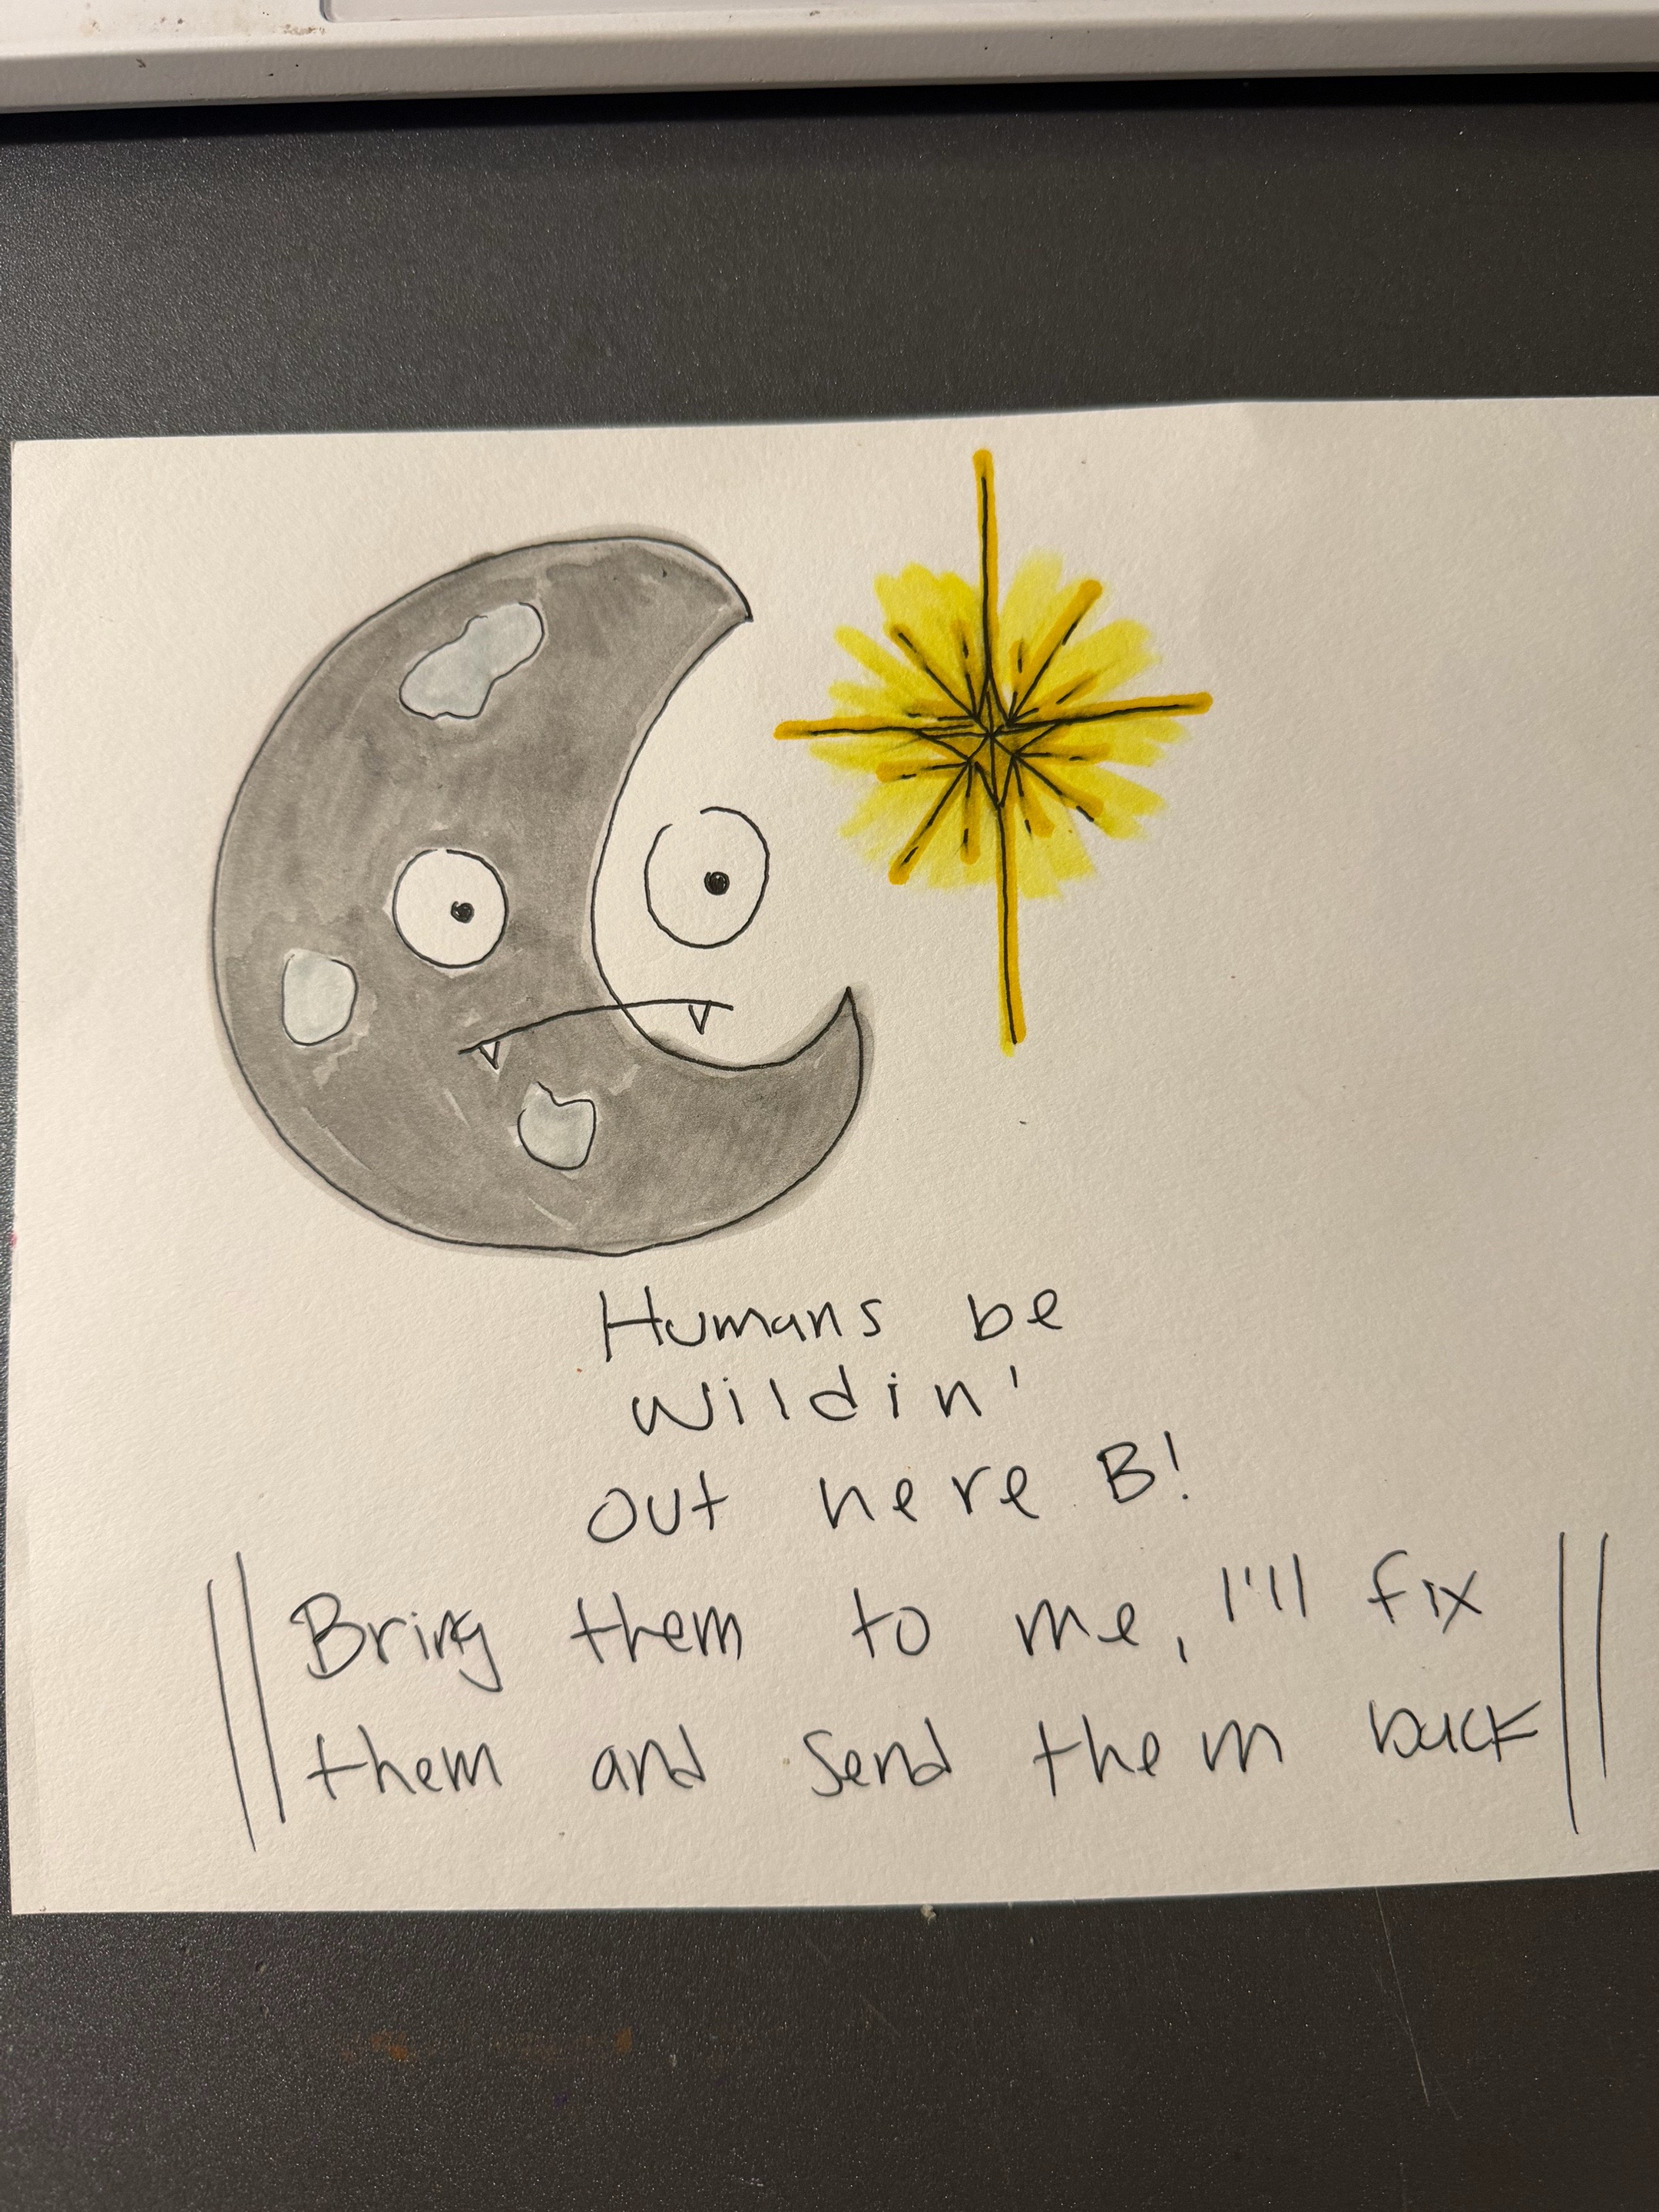 Humans be
wildin'
out here B!
Bring them to me, I'll fix
them and send them back